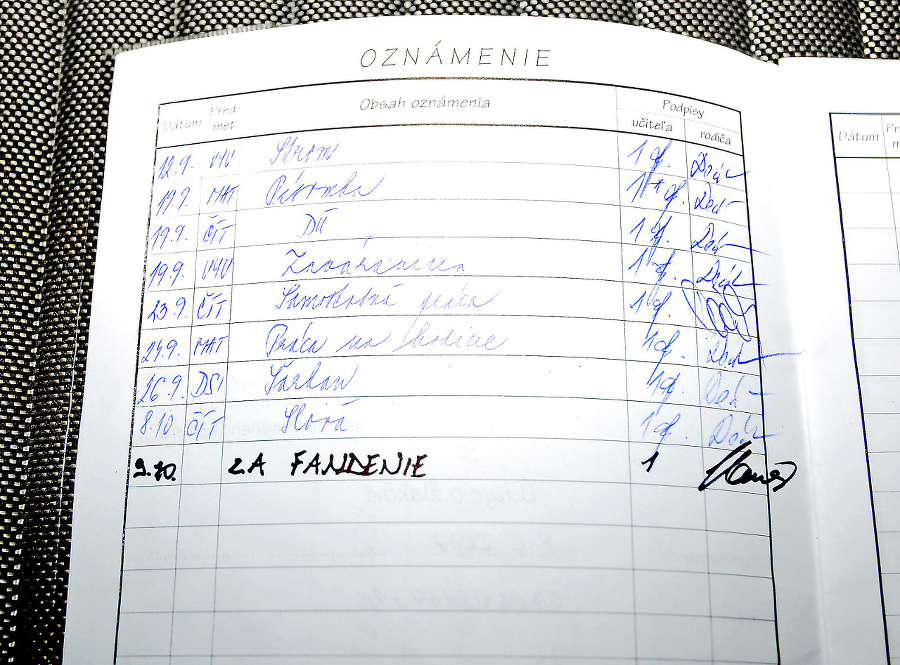 OZNÁMENIE
Dátum Pred-met Obsah oznámenia Podpisy
učiteľa rodiča
12.9. VYV Strom 1
19.9. MAT Písomka 1*
19.9. ČÍT DÚ 1
19.9. VYV Zaváranina 1
23.9. ČÍT Samostatná práca 1
24.9. MAT Práca na hodine 1
26.9. DSI Šarkan 1
8.10. ČÍT Slová 1
9.10. ZA FANDENIE 1
Dátum